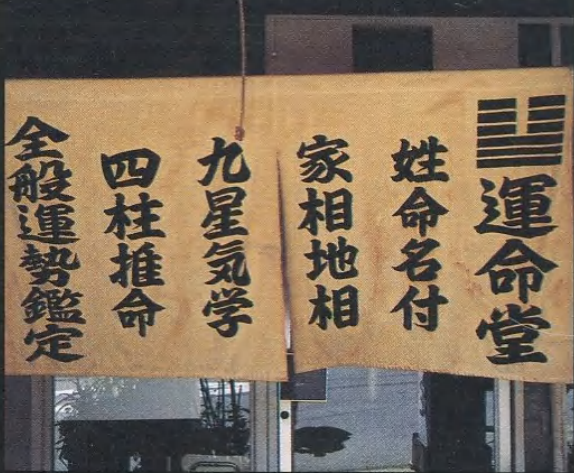 運命堂
姓命名付
家相地相
九星気学
四柱推命
全般運勢鑑定